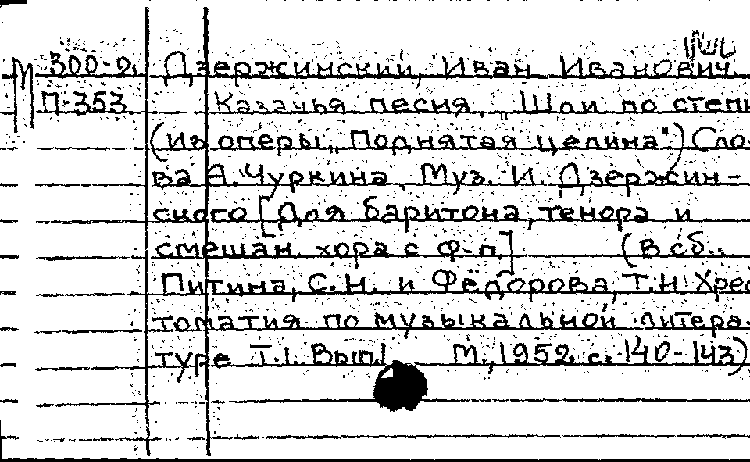 М 300-0. Дзержинский, Иван Иванович
П-353 Казачья песня "Шли по степи
(Из оперы "Поднятая целина") Сло-
ва А. Чуркина. Муз. И. Дзержин-
ского [Для баритона, тенора и
смешан. хора с ф-п.] (В сб.:
Питина, С.Н. и Фёдорова, Т.Н. Хрес
томатия по музыкальной литера-
туре Т.I. Вып.I М., 1952. с. 140-143)